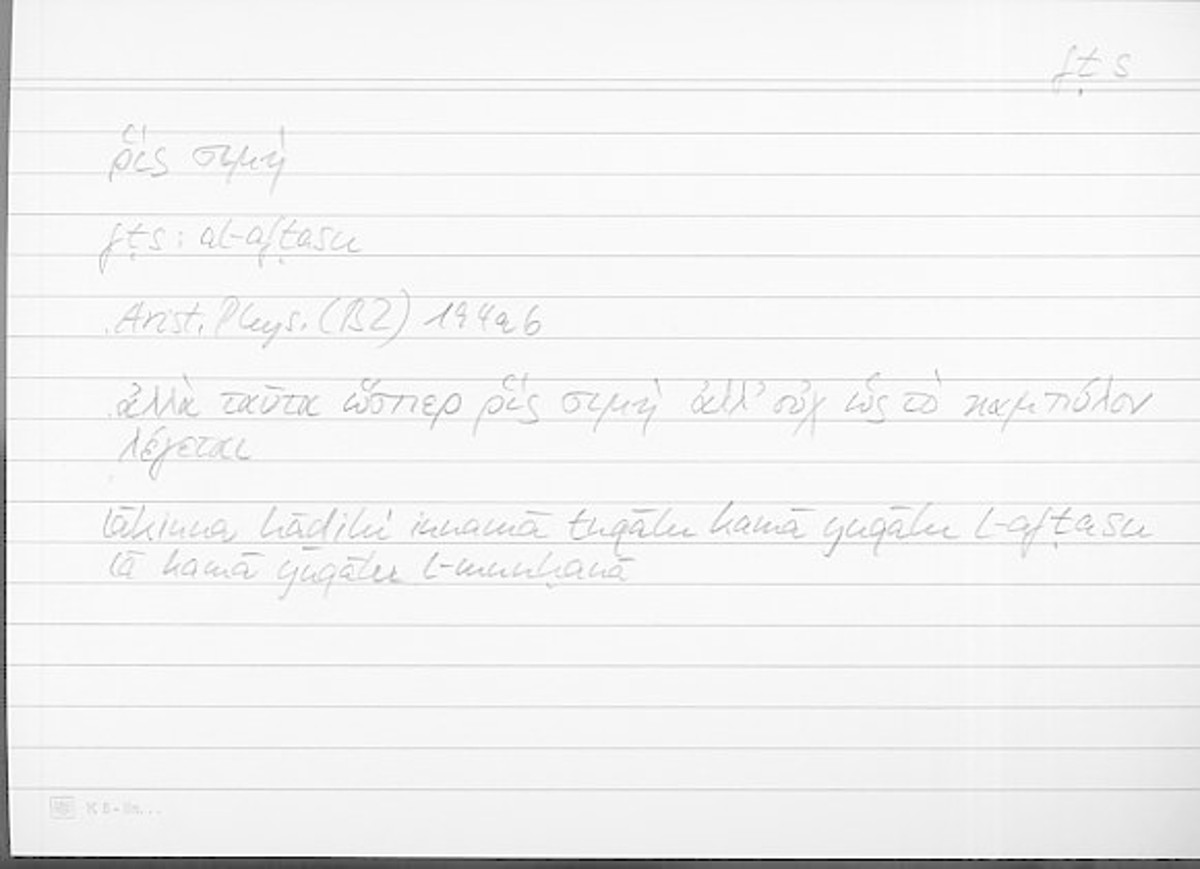 fṭs
ῥὶς σιμή
fṭs : al-afṭasu
Arist. Phys. (B2) 194a6
ἀλλὰ ταῦτα ὥσπερ ῥὶς σιμὴ ἀλλ' οὐχ ὡς τὸ καμπύλον
λέγεται
lākinna hādihi innamā tuqālu kamā yuqālu l-afṭasu
lā kamā yuqālu l-munḥanā